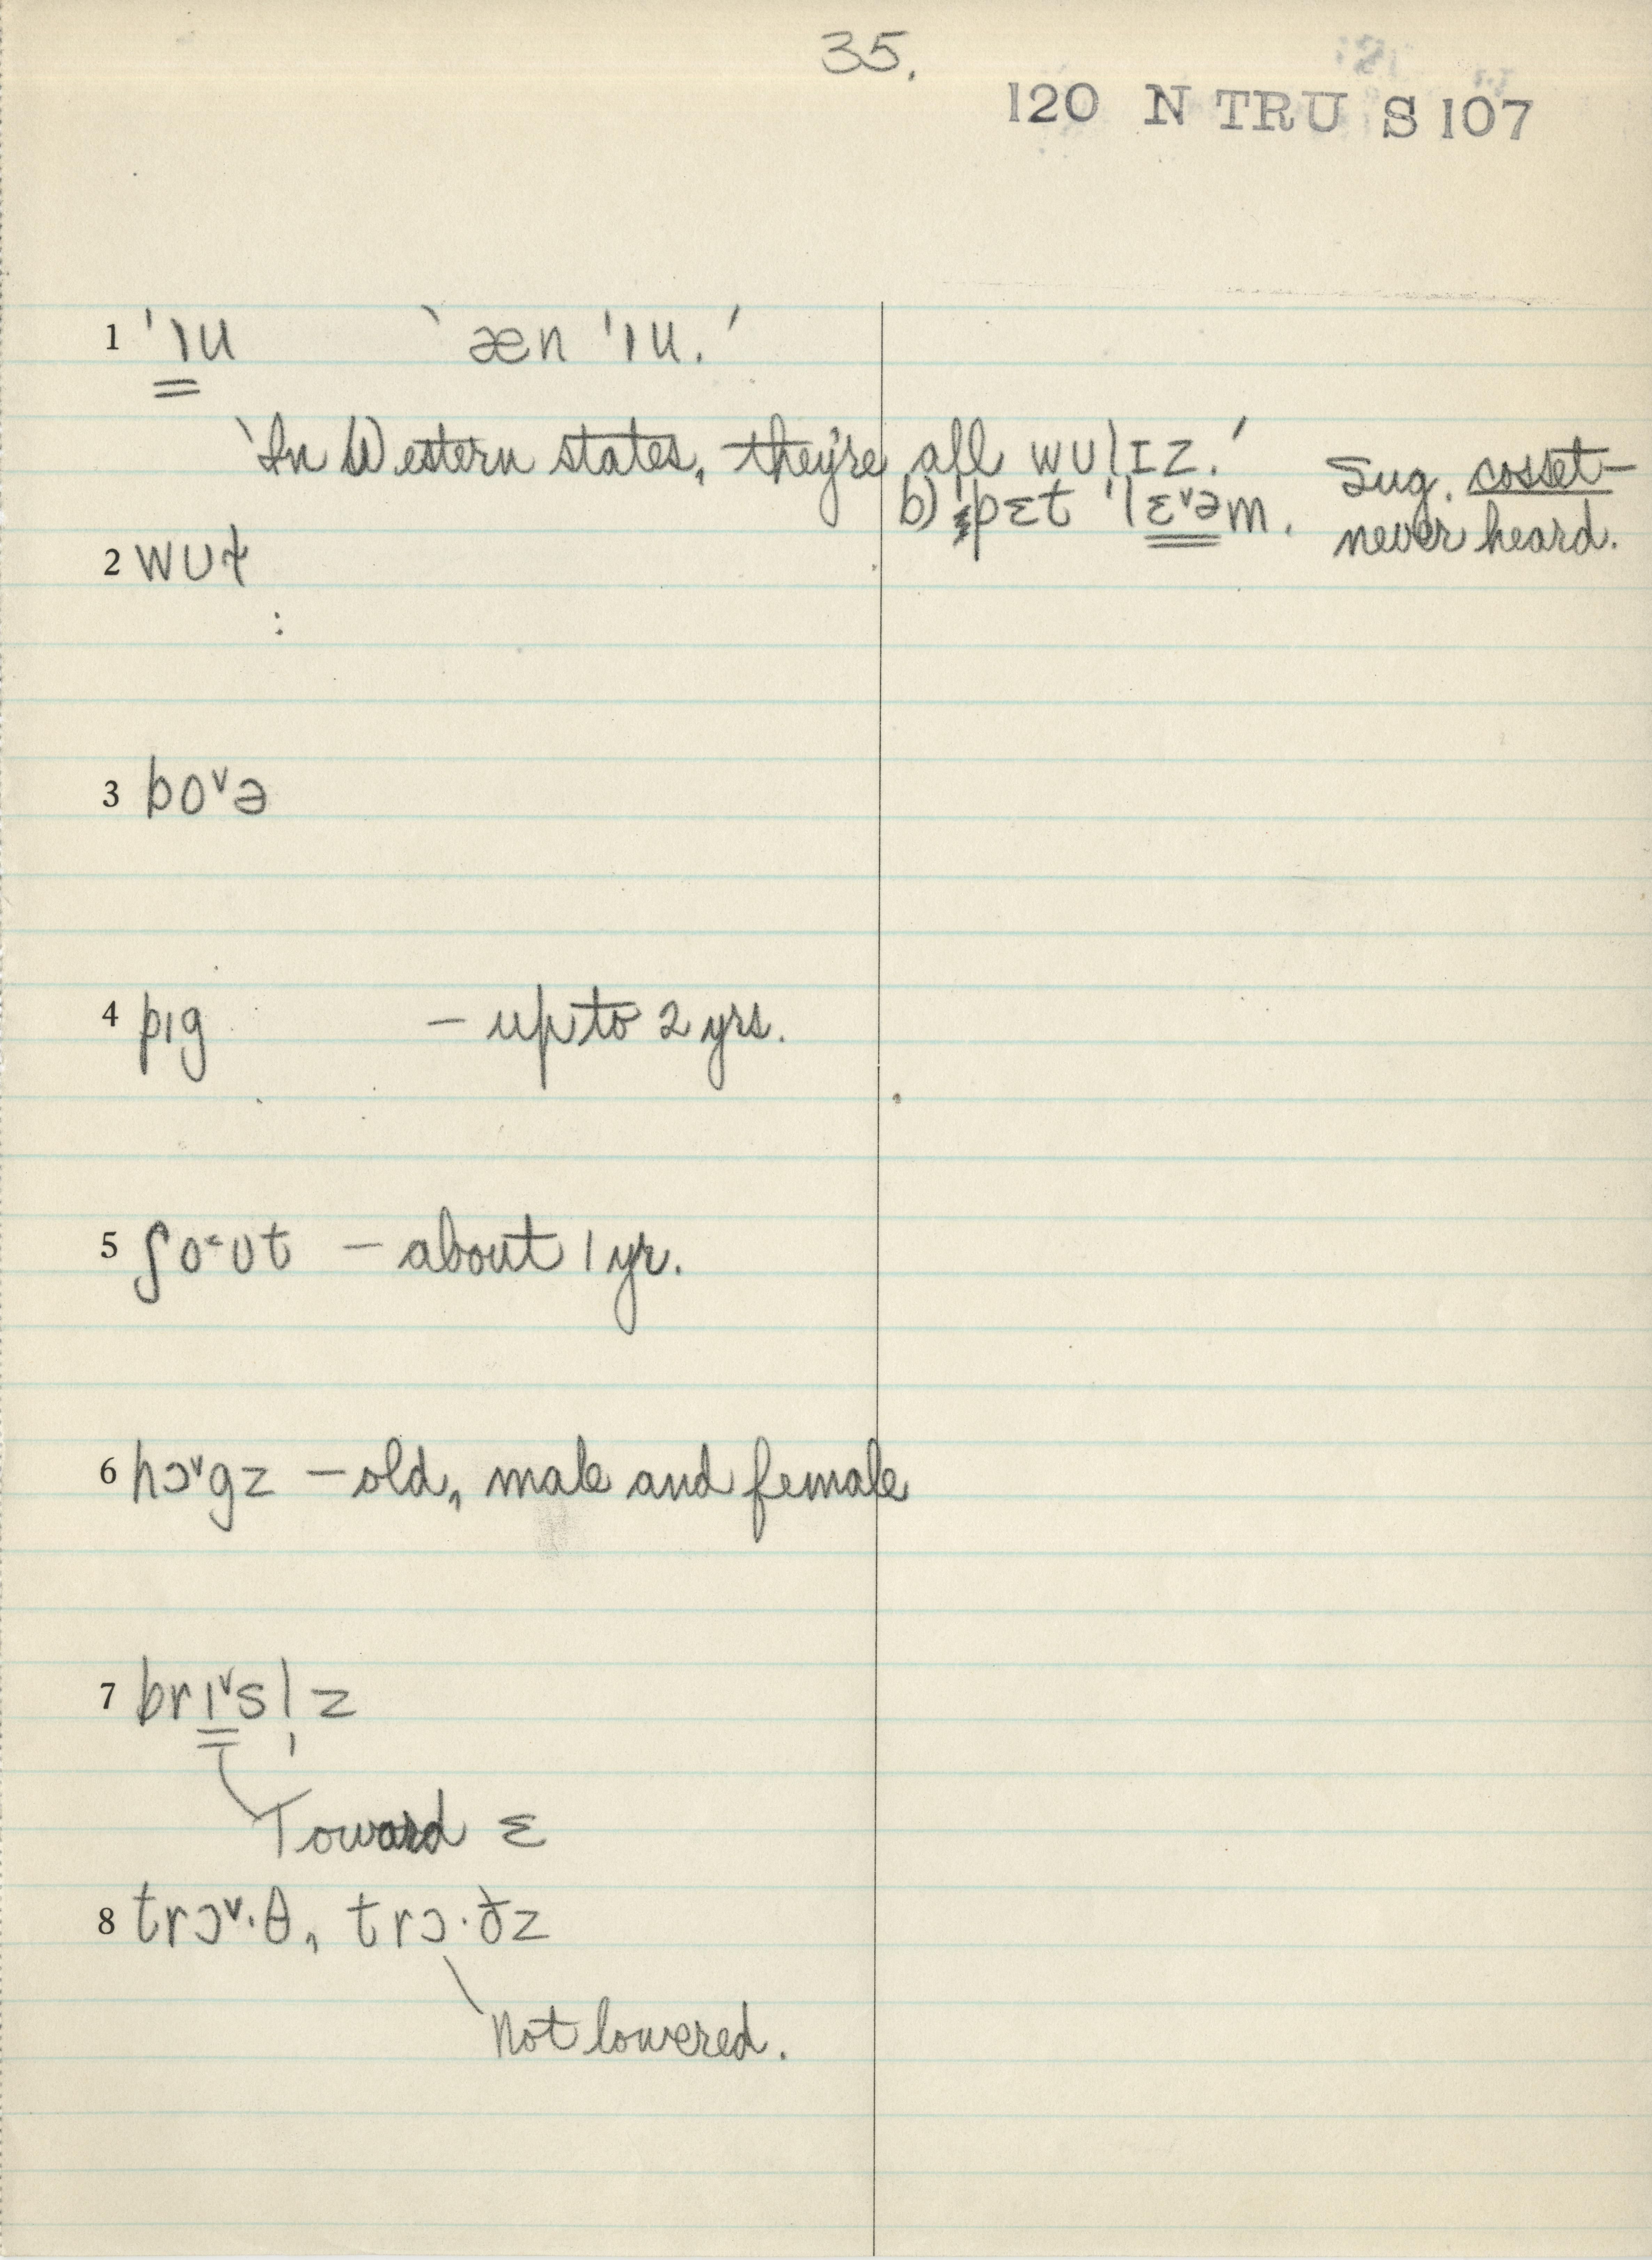 35.
120 N TRU S 107
1 'ɪu ‵æn 'ɪu.′
‵In Western states, they're all wulɪz.′
b) pɛt 'lɛ˅əm. Sug. cosset— never heard.
2 wʊɫ
:
3 bo˅ə
4 pɪg — up to 2 yrs.
5 ʃo˂ʊt — about 1 yr.
6 hɔ˅gz — old, male and female
7 brɪ˅sl̩z
Toward ɛ
8 trɔ˅·θ, trɔ·ðz
Not lowered.